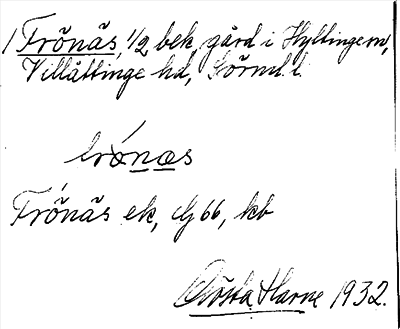 1 Frönäs, 1/2 bek, gård i Hyltinge sn,
Villåttinge hd, Sörml. l.
Frönäs ek, dj 66, kb
Gösta Harne 1932.